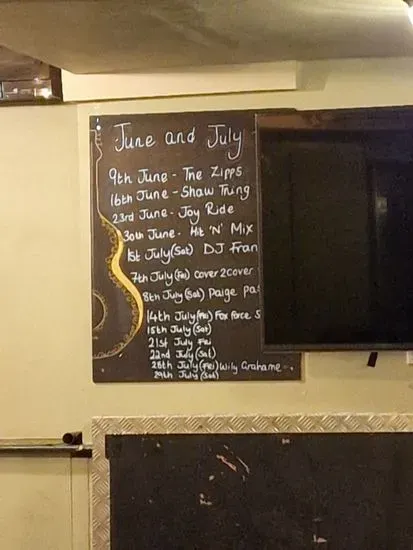 June and July
9th June - The Zipps
16th June - Shaw Thing
23rd June - Joy Ride
30th June - Hit 'N' Mix
1st July (Sat) DJ Fran
7th July (Fri) Cover 2 Cover
8th July (Sat) Paige Pa
14th July (Fri) Fox Force 5
15th July (Sat)
21st July Fri
22nd July (Sat)
28th July (Fri) Wily Grahame
29th July (Sat)